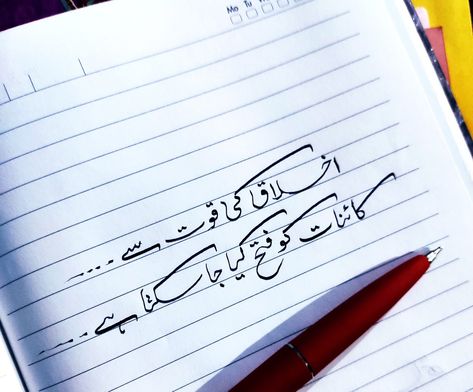 Mo Tu
اخلاق کی قوت سے ۔۔۔۔
کائنات کو فتح کیا جا سکتا ہے ۔۔۔۔